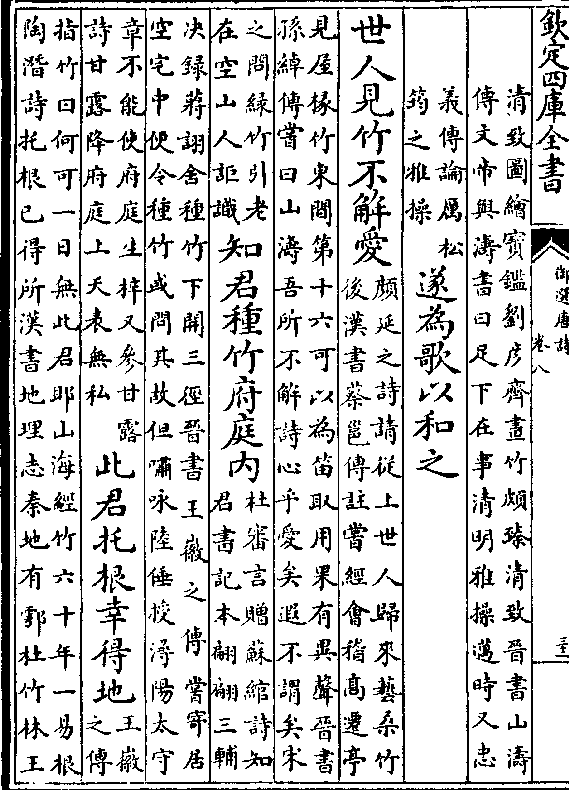 欽定四庫全書
御選唐詩
卷八
清致圖繪寳鑑劉彦齊畫竹頗臻清致晉書山濤
傳文帝與濤書曰足下在事清明雅操邁時又忠
義傳論厲松
筠之雅操
遂為歌以和之
世人見竹不解愛
顔延之詩請從上世人歸來藝桑竹
後漢書蔡邕傳註嘗經會稽髙遷亭
見屋椽竹東間第十六可以為笛取用果有異聲晉書
孫綽傳嘗曰山濤吾所不解詩心乎愛矣遐不謂矣宋
之問緑竹引老
在空山人詎識
知君種竹府庭内
杜審言贈蘇綰詩知
君書記本翩翩三輔
决録蔣詡舍種竹下開三徑晉書王徽之傳嘗寄居
空宅中便令種竹或問其故但嘯咏陸倕授潯陽太守
章不能使府庭生梓又參甘露
詩甘露降府庭上天表無私
此君托根幸得地
王徽
之傳
指竹曰何可一日無此君耶山海經竹六十年一易根
陶潛詩托根已得所漢書地理志秦地有鄠杜竹林王